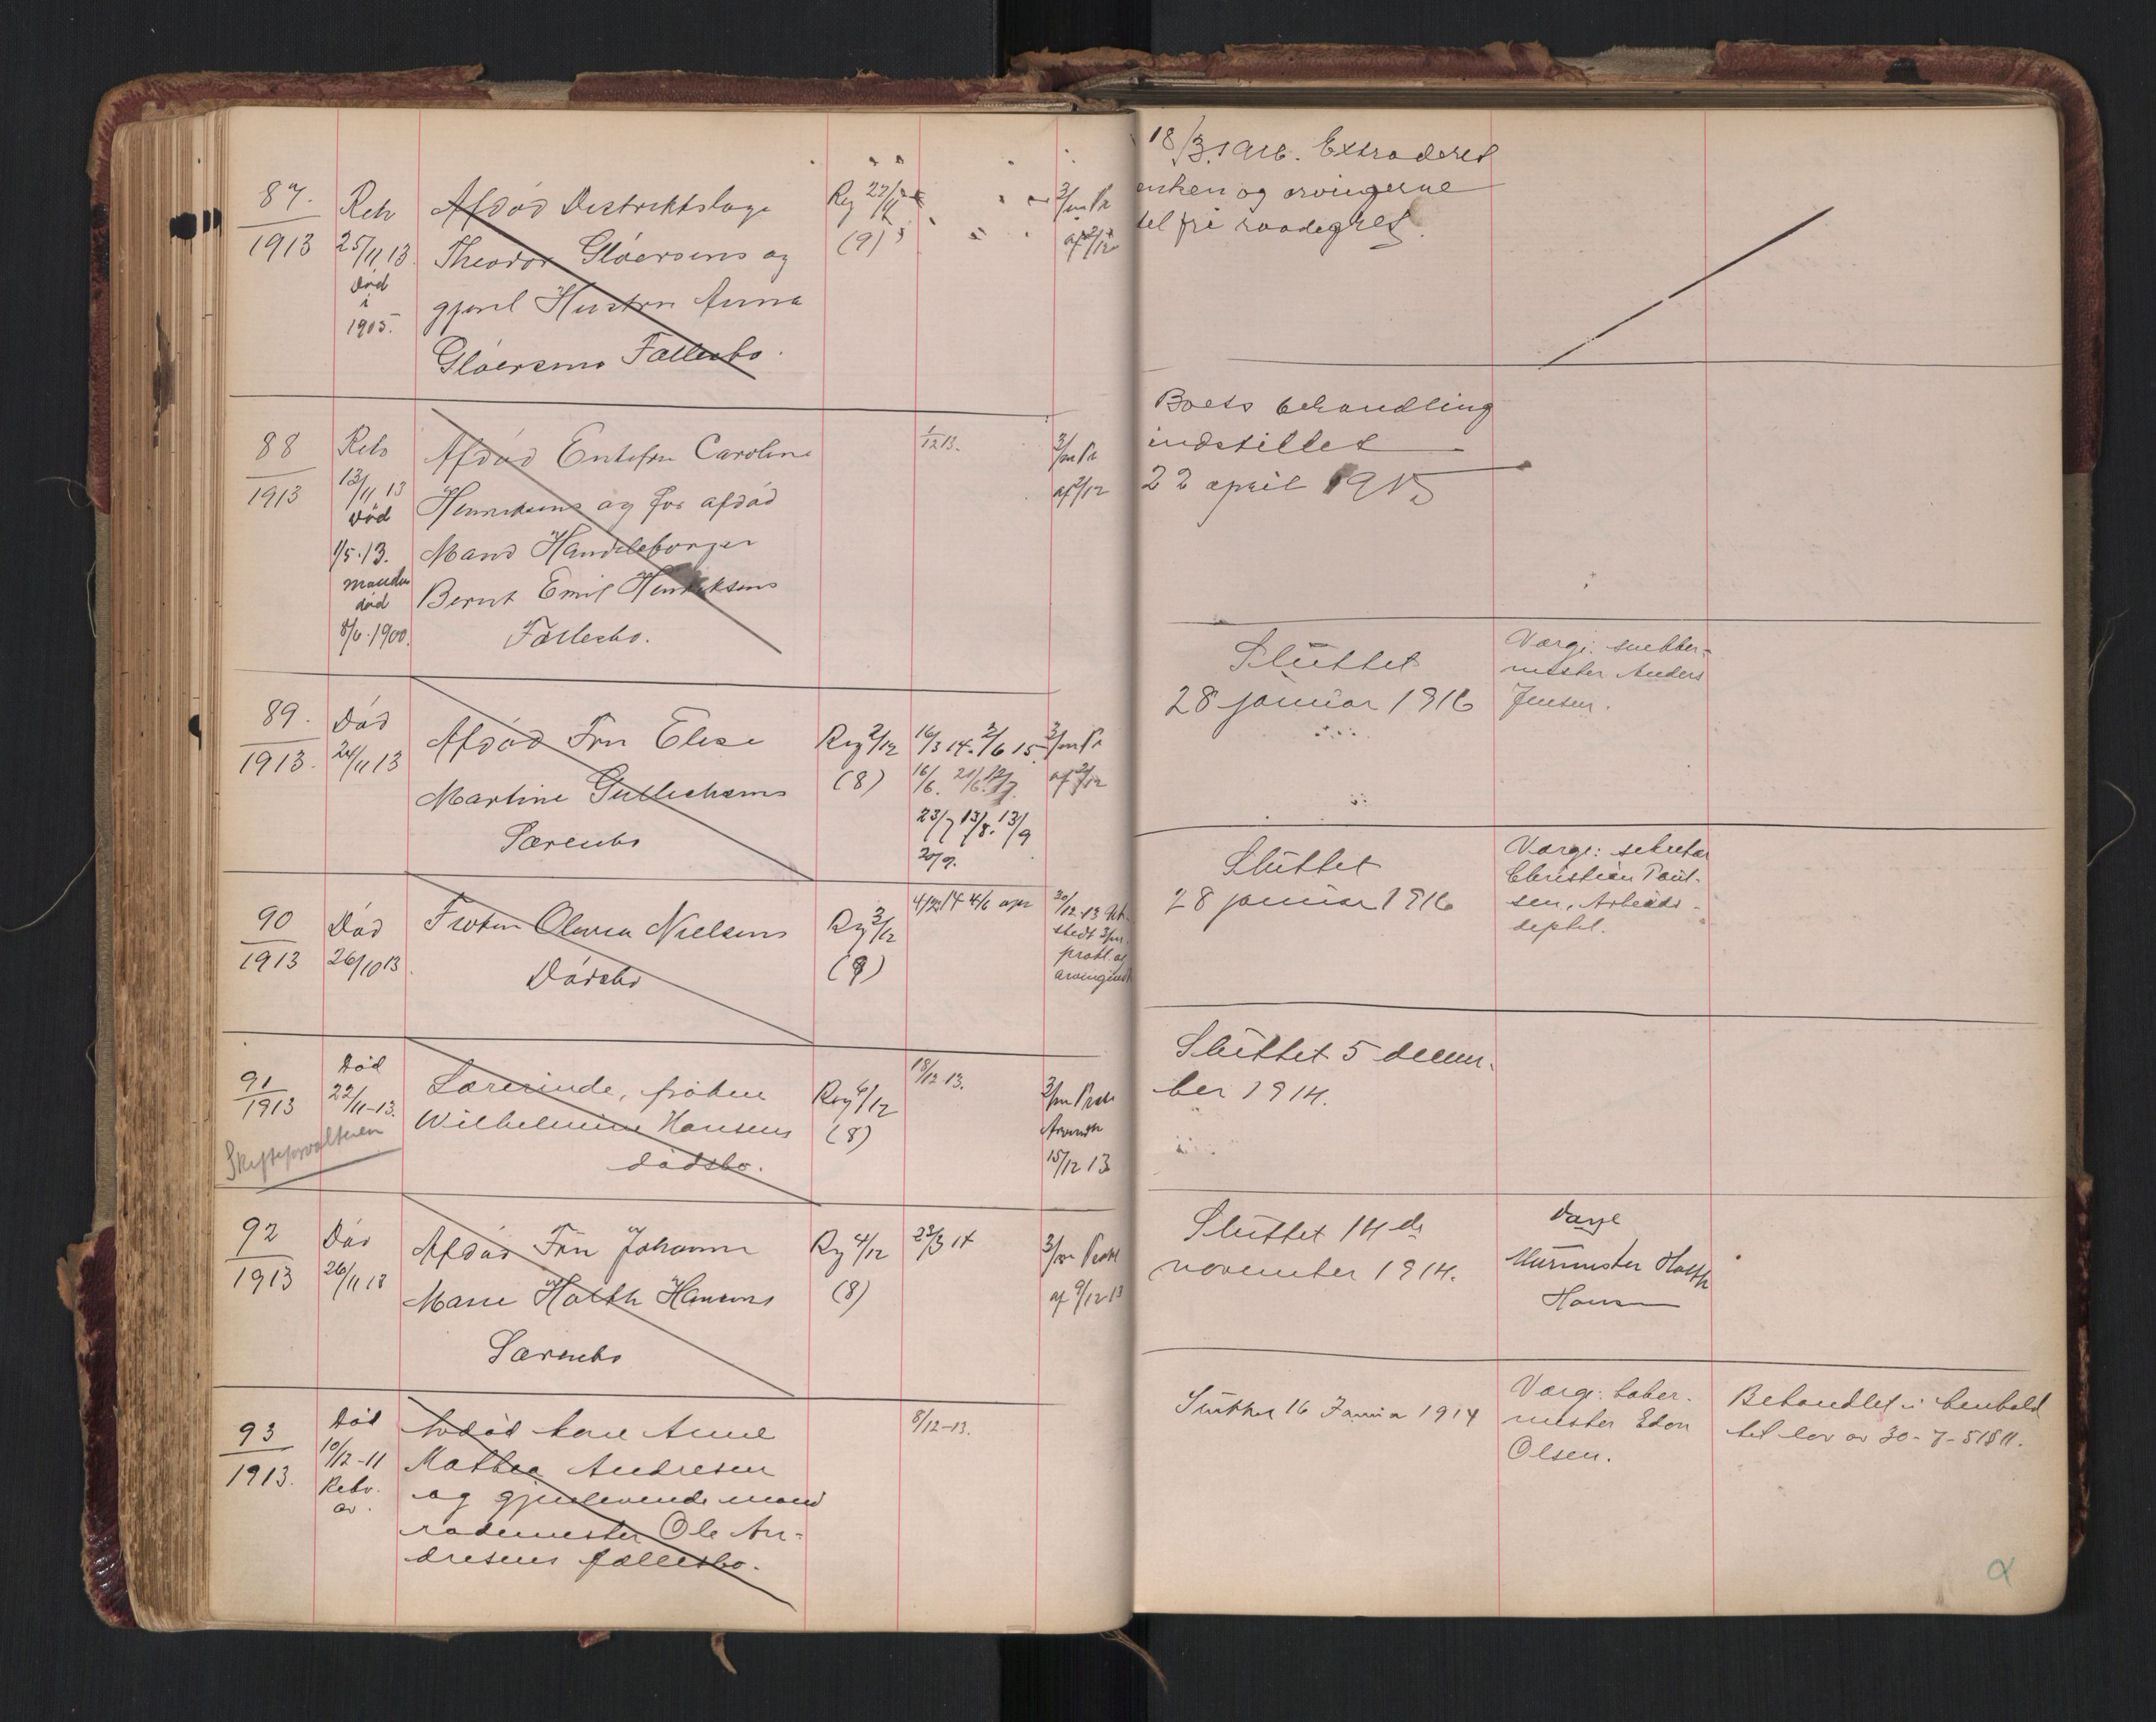 87.
1913
Rek
25/11 13.
død
i
1905.
Afdød Distriktslæge
Theodor Gløersens og
gjenl Hustru Anna
Gløersens Fællesbo.
Reg
(9)
3/m Pr
af 2/12
18/3.1916. Extraderet
enken og arvingerne
til fri raadighet.
88
1913
Rek
13/11 13
død
1/5.13.
manden
død
8/6.1900.
Afdød Enkefru Caroline
Henriksens og før afdød
Mand Handelsborger
Bernt Emil Henriksens
Fællesbo.
1/12 13.
3/m Pr
af 2/12
Boets behandling
indstillet
22 april 1915
89.
1913.
Død
24/11 13
Afdød Fru Elise
Martine Gulliksens
Særbo
Reg 2/12
(8)
16/3 14. 2/6 15.
16/6. 21/6.
23/7 13/8. 13/9
20/9.
3/m Pr
af 2/12
Sluttet
28 januar 1916
Værge: snekker-
mester Anders
Jensen.
90
1913
Død
26/10 13
Frøken Olevia Nielsens
Dødsbo
Reg 3/12
(9)
30/12 13 Ut-
stedt 3/m.
prokl. og
arvingindk
Sluttet
28 januar 1916
Værge: sekretær
Christian Paul-
sen, Arbeids-
deptet.
91
1913
Skifteforvalteren
Død
22/11-13.
Lærerinde, frøken
Wilhelmine Hansens
dødsbo.
Reg 4/12
(8)
18/12 13.
3/m Prok
Arvindk
15/12 13
Sluttet 5 decem-
ber 1914.
92
1913
Død
26/11 13
Afdød Fru Johanne
Marie Holth Hansens
Særbo
Reg 4/12
(8)
23/3 14
3/m Prokl
af 9/12 13
Sluttet 14 de
november 1914.
Værge
Murmester Holth
Hansen
93
1913.
Død
10/12-11
Rekv.
av.
Avdød kone Anne
Mathea Andresen
og gjenlevende mand
rodemester Ole An-
dresens fællesbo.
8/12-13.
Sluttet 16 Januar 1914
Værge:
mester Edon
Olsen.
Behandlet i henhold
til lov av 30-7-51 § 11.